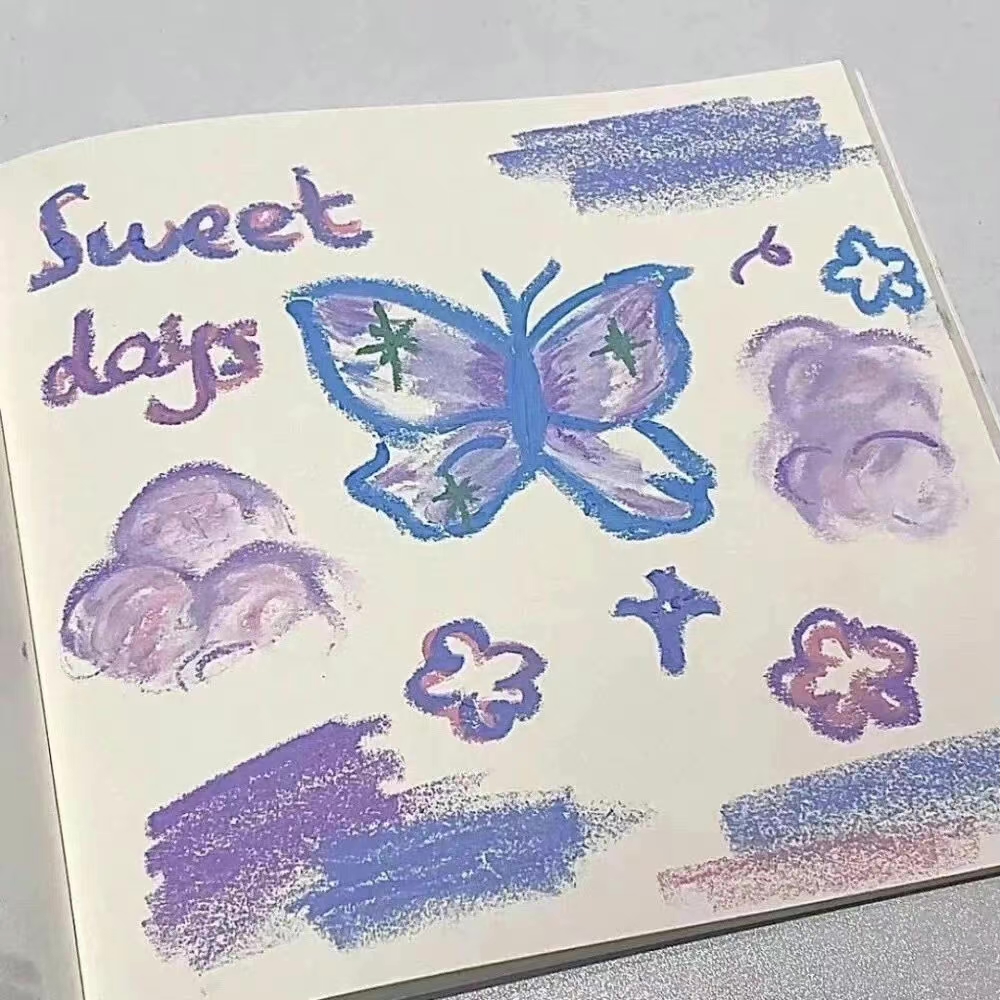 Sweet
days